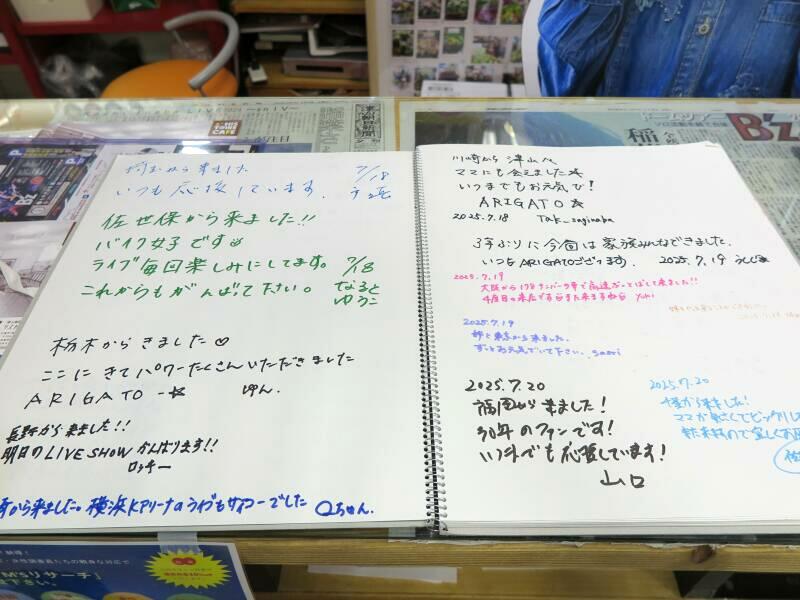 B'z
埼玉から来ました
いつも応援しています。
7/18
佐世保から来ました!!
バイク女子です♡
ライブ毎回楽しみにしてます。 7/18
これからもがんばって下さい。 なると
ゆうこ
栃木からきました♡
ここにきてパワーたくさんいただきました
ARIGATO
ゆん。
長野から来ました!!
明日のLIVE SHOW がんばります!!
ロッキー
から来ました。横浜Kアリーナのライブもサイコーでした Qちゃん.
川崎から津山へ
ママにも会えました☆
いつまでもお元気で!
ARIGATO☆
2025.7.18
3年ぶりに今回は家族みんなできました.
いつもARIGATOございます. 2025.7.19
2025.7.19
大阪から178ナンバーの車で高速ぶっとばして来ました!!
4度目の来店です また来ますね yuki
2025.7.19
姉と東京から来ました。
ずっとお元気でいて下さい. saori
2025.7.20
福岡から来ました!
30年のファンです!
いつまでも応援しています!
山口
2025.7.20
千葉から来ました!
ママが
また来ますので宜しくお
M'sリサーチ